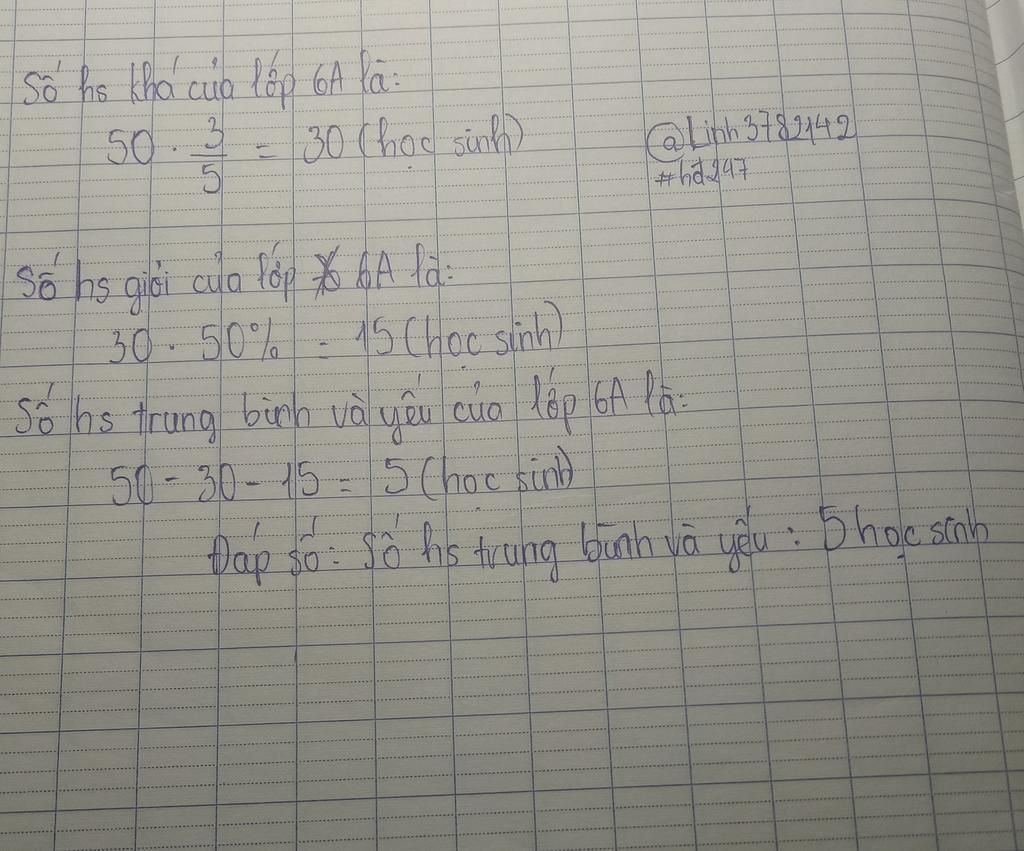 Số hs khá của lớp 6A là:
50 . 3/5 = 30 (học sinh)
@Linh3782142
#hđ247
Số hs giỏi của lớp 6A là:
30 . 50% = 15 (học sinh)
Số hs trung bình và yếu của lớp 6A là:
50 - 30 - 15 = 5 (học sinh)
Đáp số: Số hs trung bình và yếu : 5 học sinh